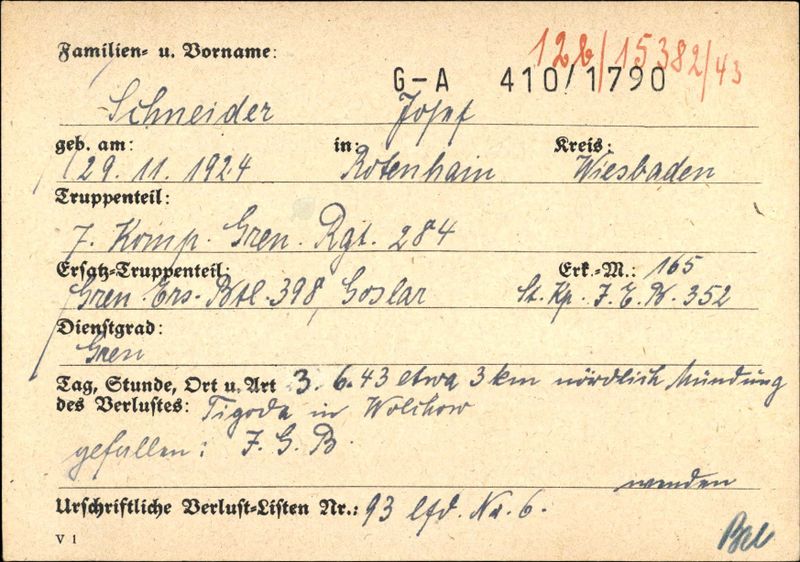 Familien- u. Vorname:
12b/15382/43
G-A 410/1790
Schneider Josef
geb. am: in: Kreis:
29. 11. 1924 Rotenhain Wiesbaden
Truppenteil:
7. Komp. Gren. Rgt. 284
Ersatz-Truppenteil: Erk.-M.: 165
Gren. Ers. Btl. 398, Goslar St. Kp. J. E. B. 352
Dienstgrad:
Gren
Tag, Stunde, Ort u. Art 3. 6. 43 etwa 3 km nördlich Mündung
des Verlustes: Tigoda in Wolchow
gefallen: J. G. B.
wenden
Urschriftliche Verlust-Listen Nr.: 93 lfd. Nr. 6.
V 1